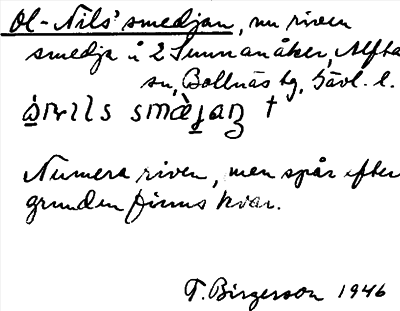 Ol-Nils' smedjan, nu riven
smedja i 2 Sunnanåker, Alfta
sn, Bollnäs tg, Gävl. l.
Numera riven, men spår efter
grunden finns kvar.
T. Birgerson 1946